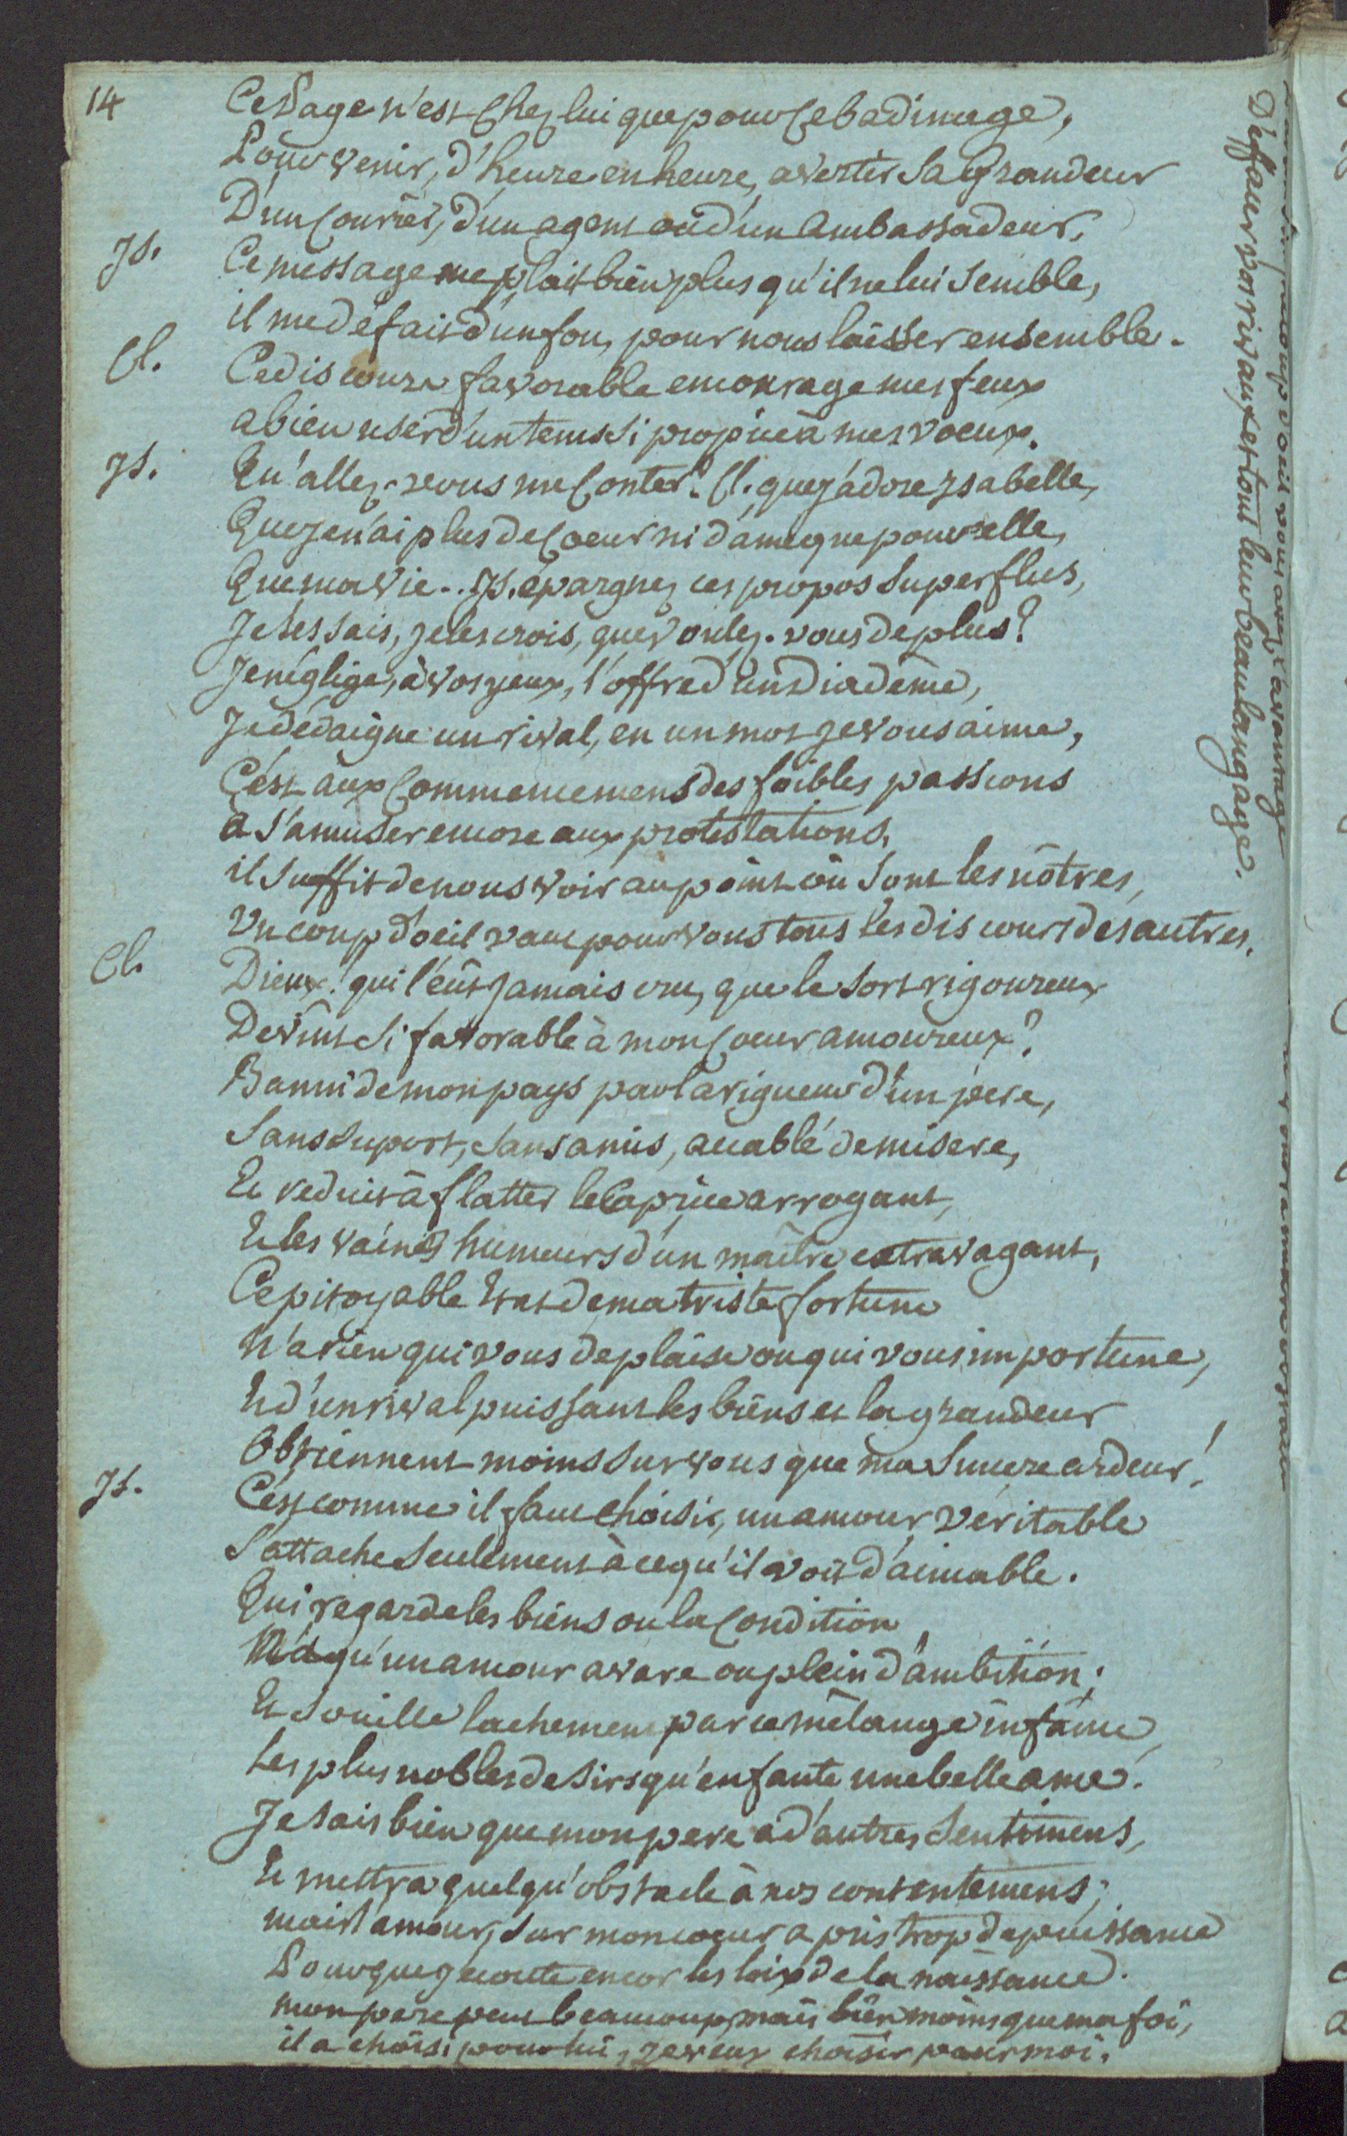 14
Ce Page n'est Chez lui que pour Ce badinage,
Pour venir, d'heure en heure, avertir Sa Grandeur
D'un Courier, d'un agent ou d'un Ambassadeur.
Is. Ce message me plait bien plus qu'il ne lui Semble,
il me défait d'un fou, pour nous laisser ensemble.
Cl. Ce discours favorable encourage mes feux
a bien user d'un tems si propice à mes voeux.
Is. Qu'allez-vous me Conter? Cl. que j'adore ysabelle,
Que je n'ai plus de Coeur ni d'ame que pour elle,
Que ma vie.. Is. épargnez ces propos Superflus,
Je les sais, je les crois, que voulez-vous de plus?
Je néglige, à vos yeux, l'offre d'un Diadème,
Je dédaigne un rival, en un mot je vous aime,
C'est aux Commencemens des foibles passions
a S'amuser encore aux protestations,
il Suffit de nous voir au point où Sont les nôtres,
Un coup d'oeil vaut pour vous tous les discours des autres.
Cl. Dieux! qui l'eût jamais cru, que le Sort rigoureux
Devint Si favorable à mon Coeur amoureux?
Banni de mon pays par la rigueur d'un pere,
Sans Suport, Sans amis, accablé de misere,
Et reduit à flatter le Caprice arrogant,
Et les vaines humeurs d'un maître extravagant,
Ce pitoyable Etat de ma triste fortune
N'a rien qui vous deplaise ou qui vous importune,
Et d'un rival puissant les biens et la grandeur
Obtiennent moins Sur vous que ma Sincere ardeur!
Is. C'est comme il faut choisir, un amour véritable
S'attache Seulement à ce qu'il voit d'aimable.
Qui regarde les biens ou la Condition
N'a qu'un amour avare ou plein d'ambition;
Et Souille lachement par ce mélange infame
Les plus nobles desirs qu'enfante une belle ame.
Je Sais bien que mon pere a d'autres Sentimens,
Et mettra quelqu'obstacle à nos contentemens;
mais l'amour, Sur mon coeur a pris trop de puissance
Pour que j'écoute encor les loix de la naissance.
mon pere peut beaucoup, mais bien moins que ma foi,
il a choisi pour lui, je veux choisir pour moi.
D'effacer vos rivaux et tout leur beau langage.